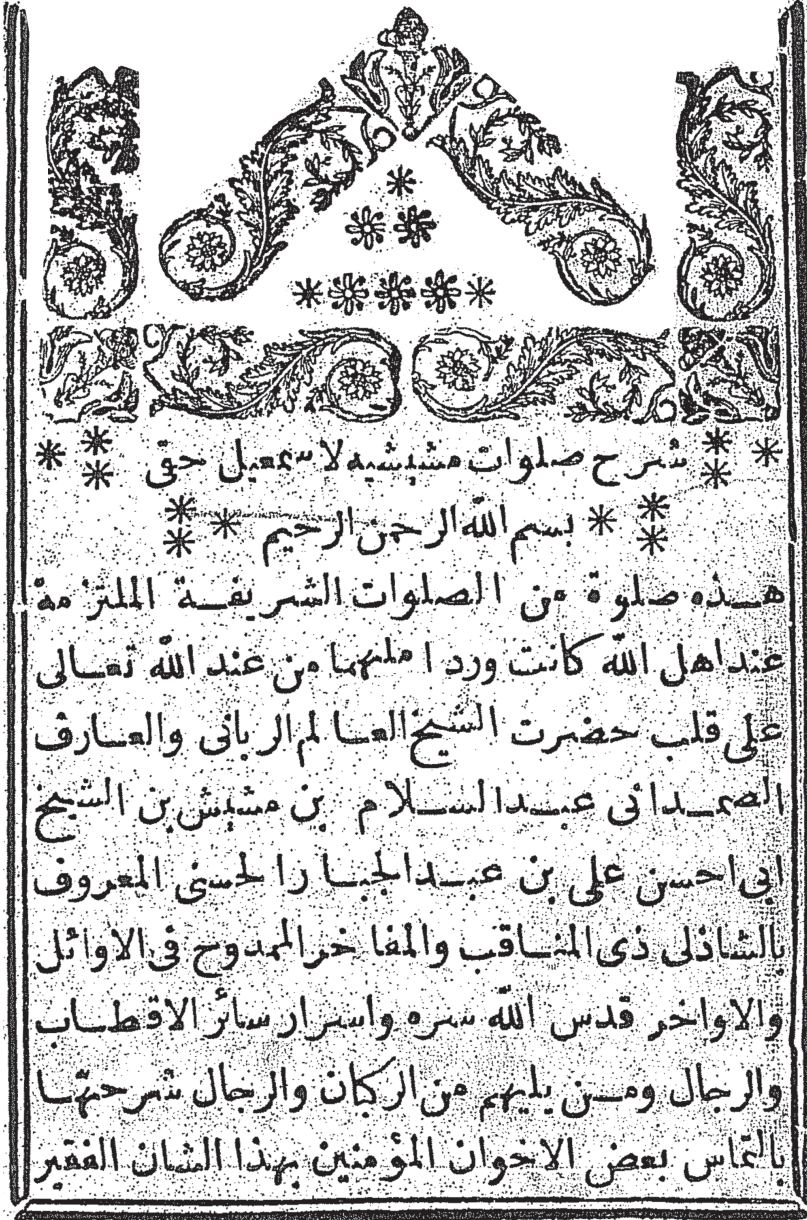 شرح صلوات مشيشيه لاسمعيل حقى
بسم الله الرحمن الرحيم
هذه صلوة من الصلوات الشريفة الملتزمة
عند اهل الله كانت وردا ملهما من عند الله تعالى
على قلب حضرت الشيخ العالم الربانى والعارف
الصمدانى عبد السلام بن مشيش بن الشيخ
ابى احسن على بن عبد الجبار الحسنى المعروف
بالشاذلى ذى المناقب والمفاخر الممدوح فى الاوائل
والاواخر قدس الله سره واسرار سائر الاقطاب
والرجال ومن يليهم من الركبان والرجال شرحتها
بالتماس بعض الاخوان المؤمنين بهذا الشان الفقير